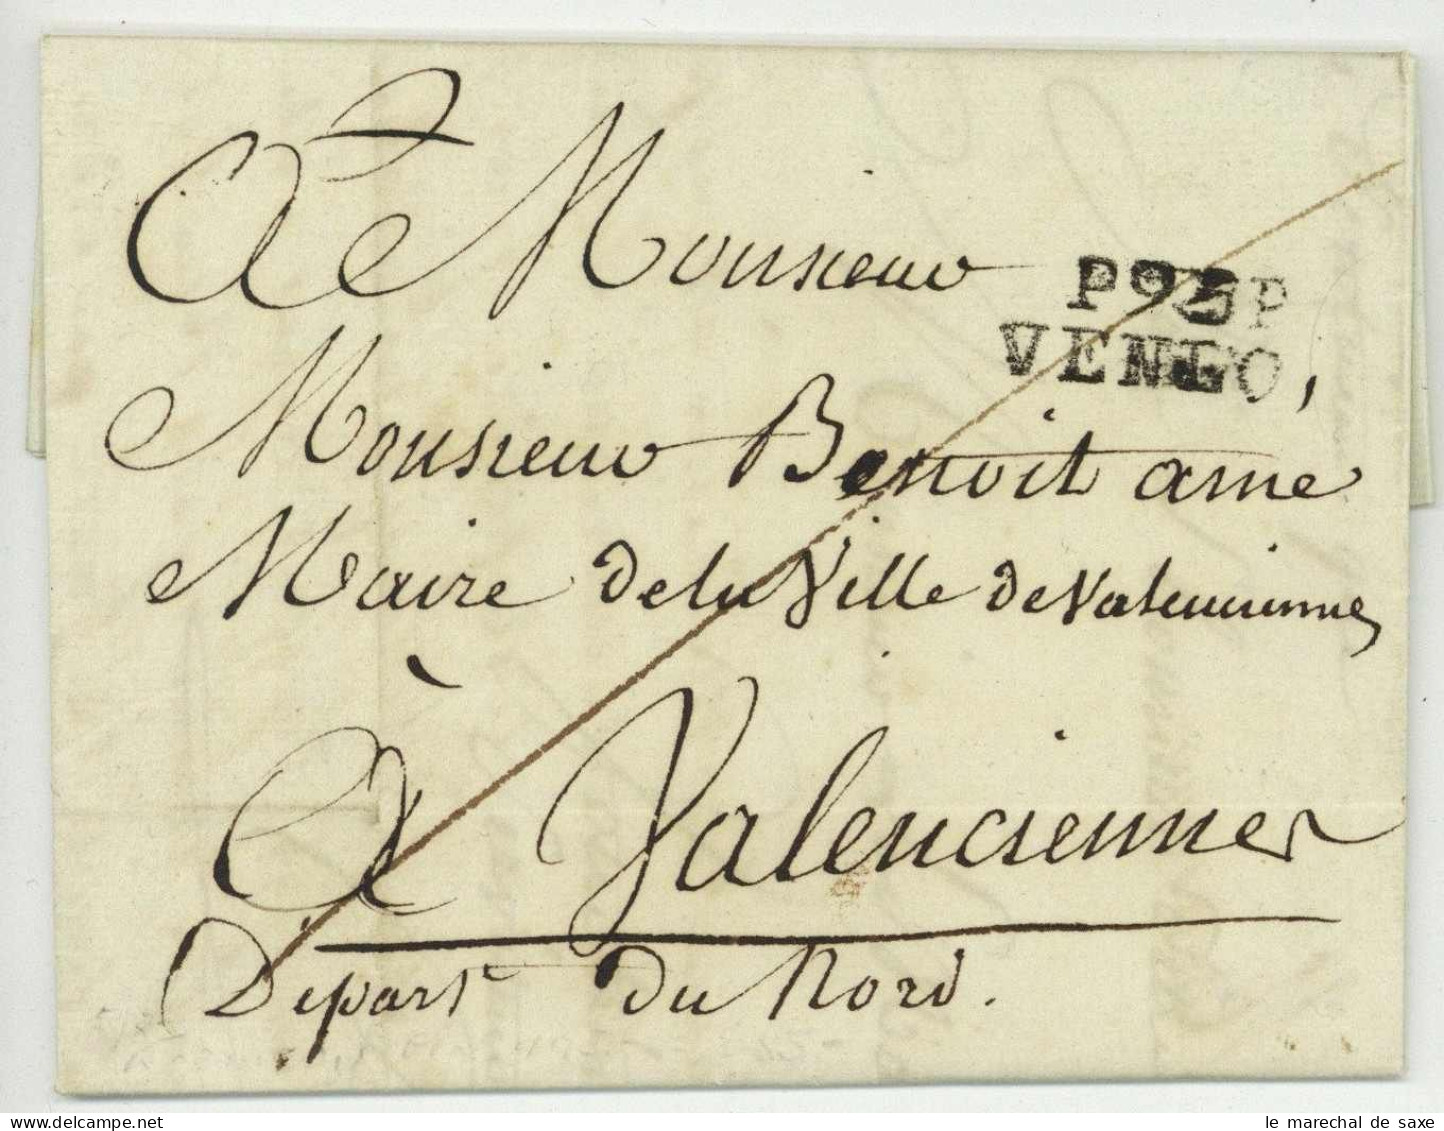 A Monsieur
P95P
VENLO
Monsieur Benoit ainé
Maire de la Ville de Valenciennes
À Valenciennes
Départt du Nord.
le marechal de saxe